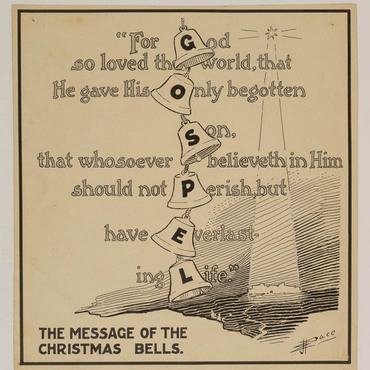 "For God
so loved the world, that
He gave His Only begotten
Son,
that whosoever believeth in Him
should not Perish, but
have Everlast-
ing Life."
THE MESSAGE OF THE
CHRISTMAS BELLS.
Pace